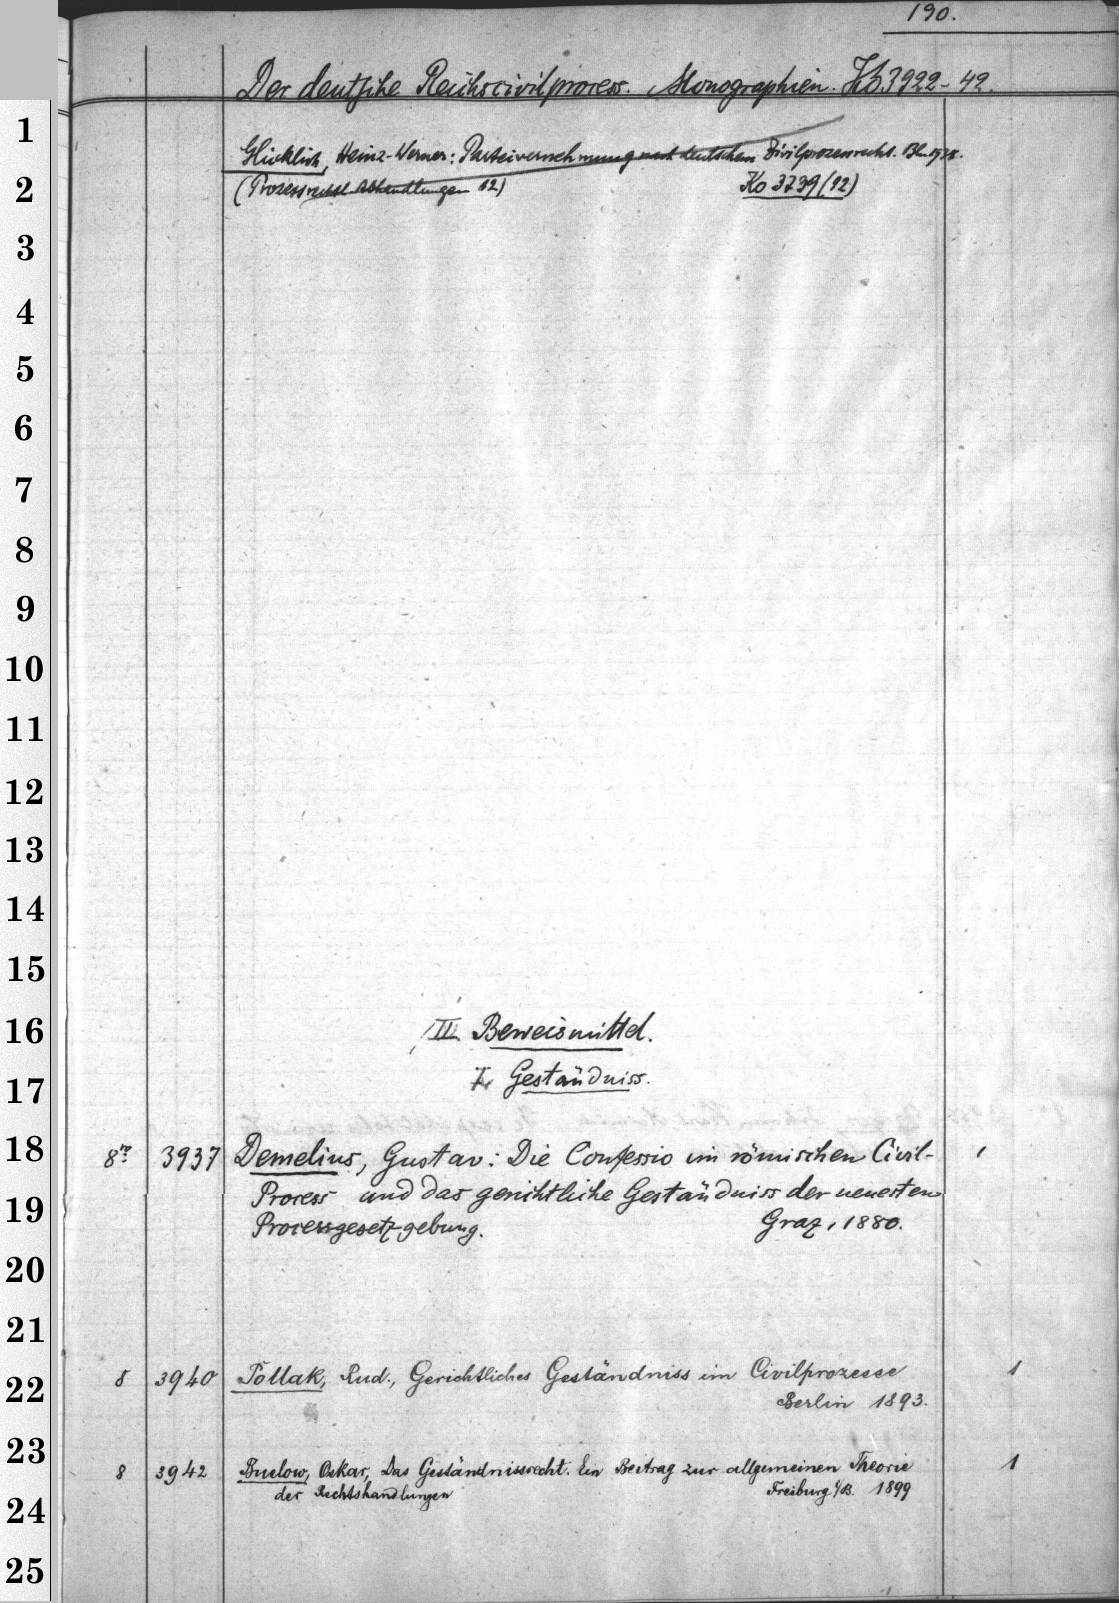 190.
Der deutsche Reichscivilprocess. Monographien. Kb 3922-42.
1
Glücklich, Heinz-Werner: Parteivernehmung nach deutschem Zivilprozessrecht. Bln 1938.
2
(Prozessrechtl Abhandlungen 12) Ko 3739 (12)
3
4
5
6
7
8
9
10
11
12
13
14
15
16
III Beweismittel.
17
I. Geständniss.
18
8º 3937 Demelius, Gustav: Die Confessio im römischen Civil- 1
19
Process und das gerichtliche Geständniss der neuesten
Processgesetzgebung. Graz, 1880.
20
21
22
8 3940 Pollak, Rud., Gerichtliches Geständniss im Civilprozesse 1
Berlin 1893.
23
8 3942 Buelow, Oskar, Das Geständnissrecht. Ein Beitrag zur allgemeinen Theorie 1
24
der Rechtshandlungen Freiburg i/B. 1899
25